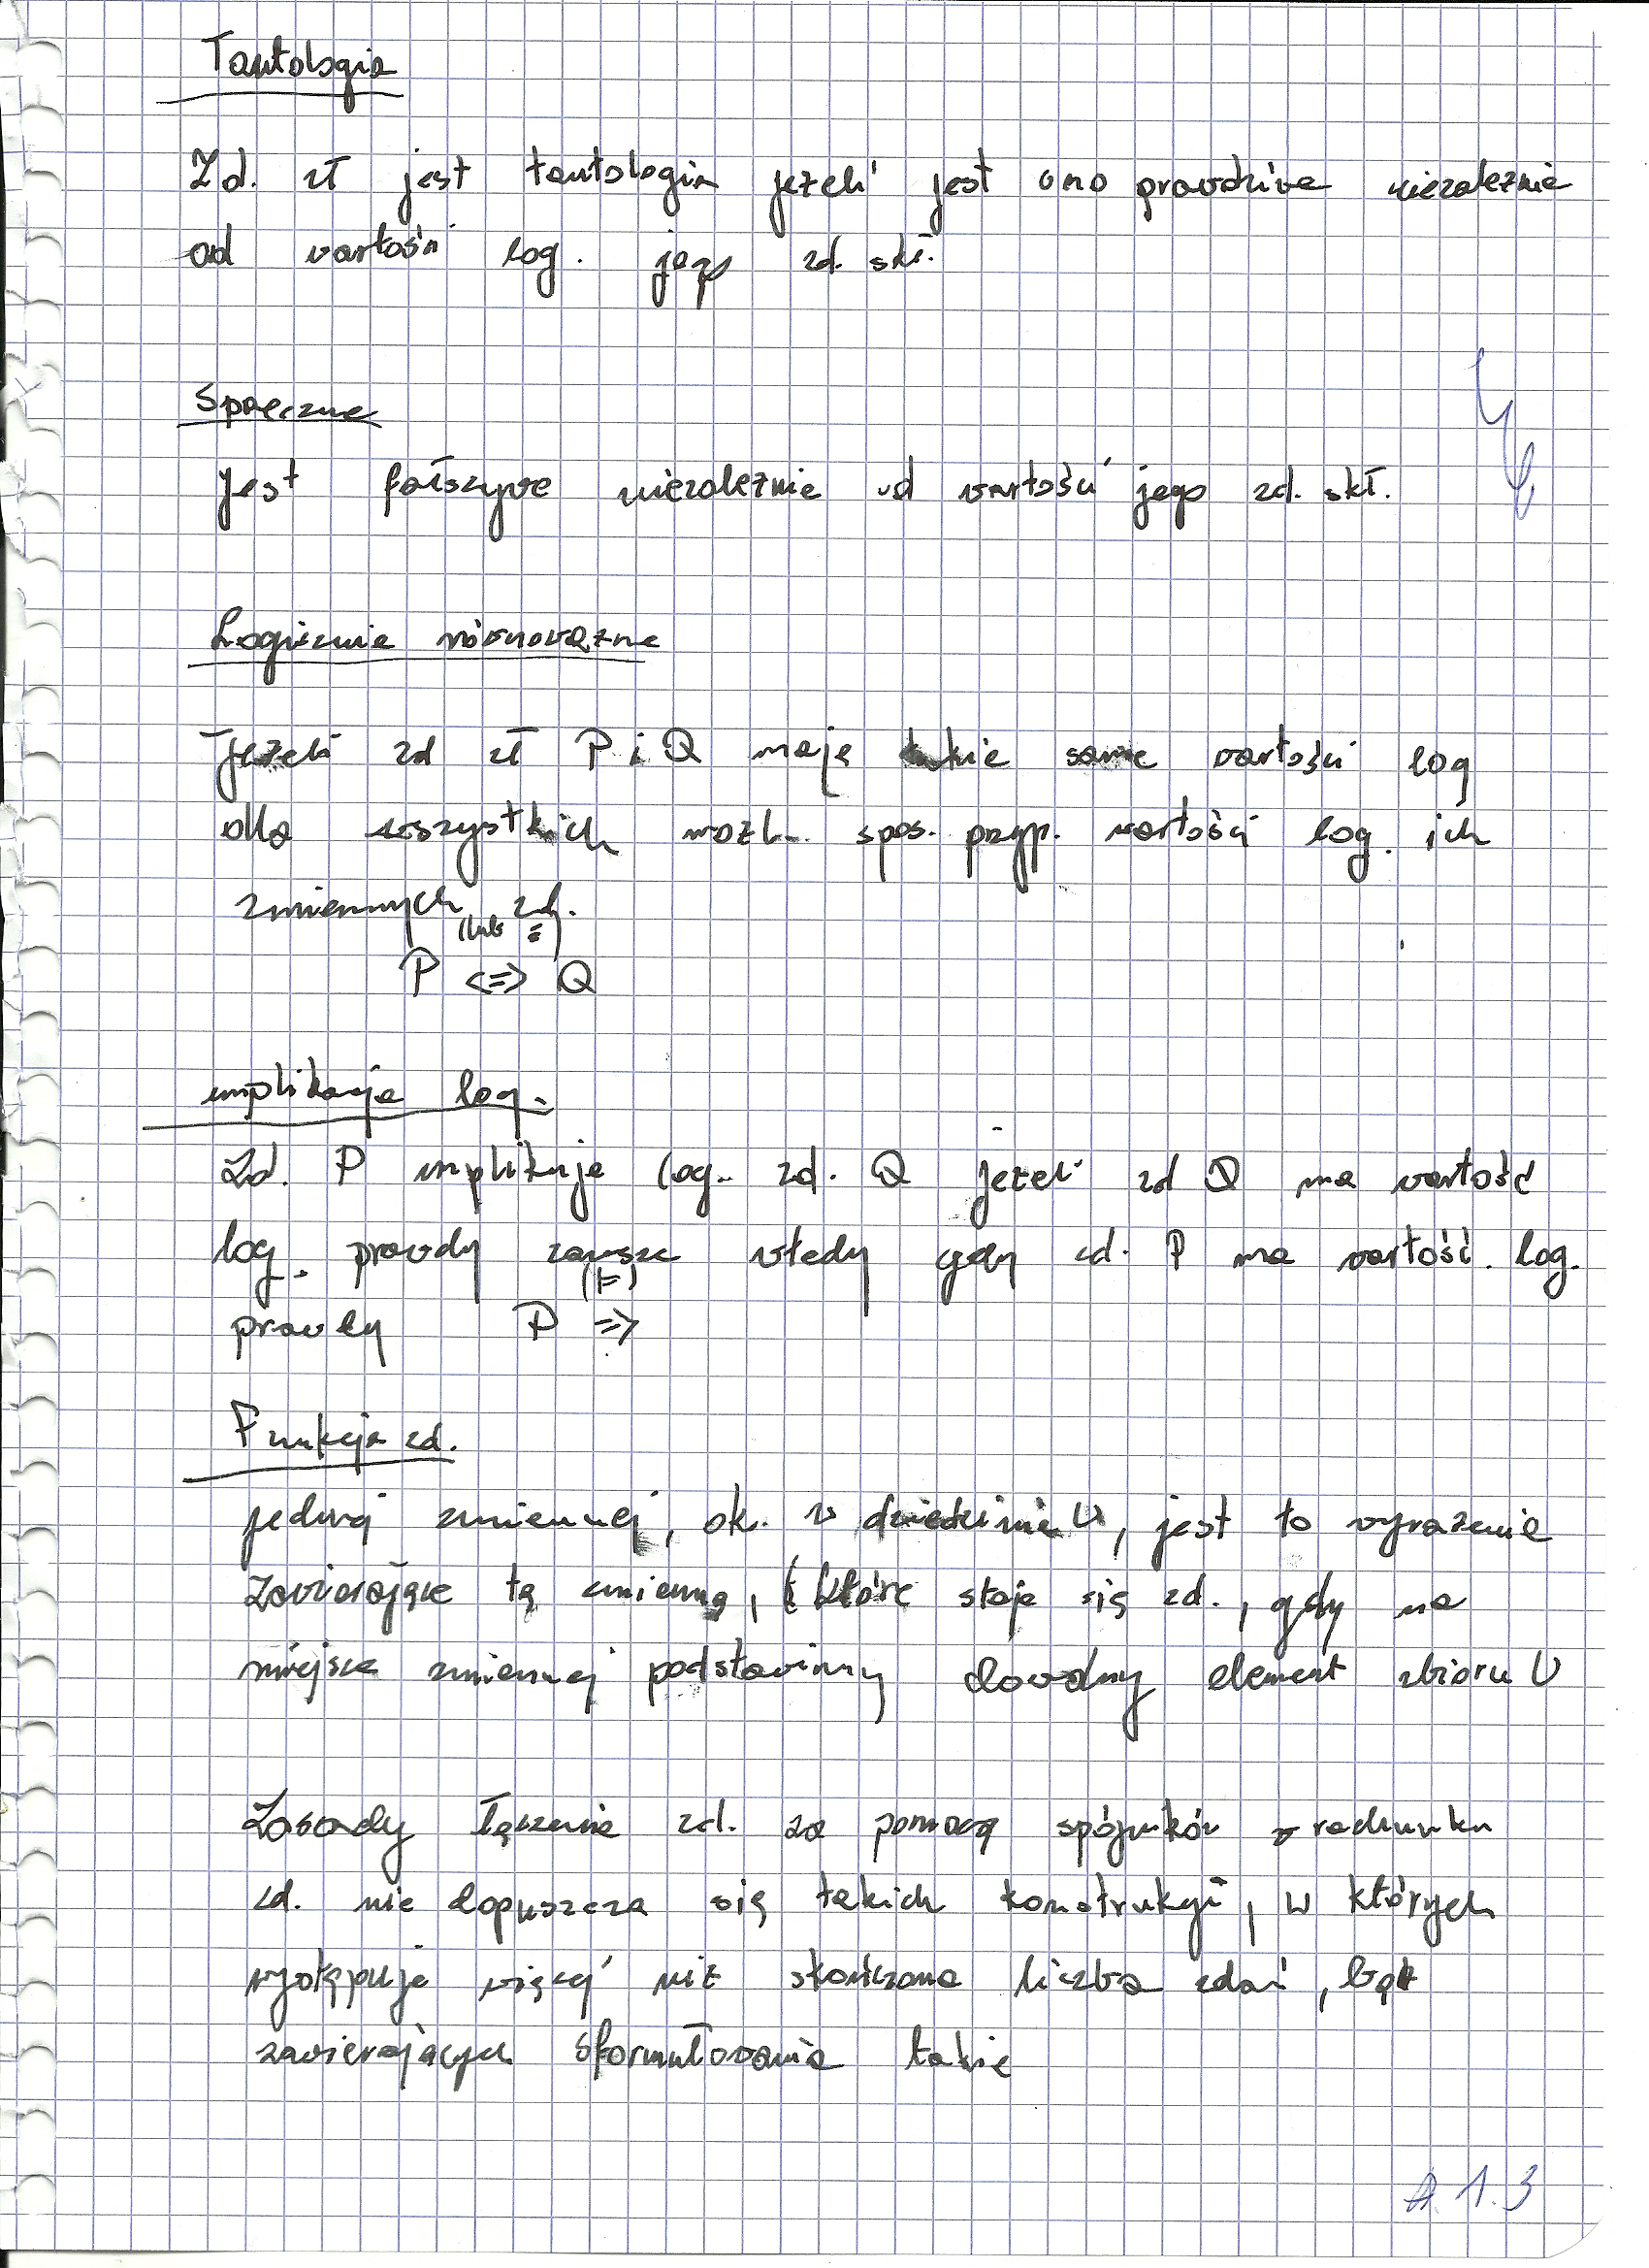 Tautologia
Zd. zł jest tautologią jeżeli jest ono prawdziwe niezależnie
od wartości log. jego zd. skł.
Sprzeczne
Jest fałszywe niezależnie od wartości jego zd. skł.
Logicznie równoważne
Jeżeli zd zł P i Q mają takie same wartości log
dla wszystkich możl. spos. przyp. wartości log. ich
zmiennych zd.
(lub ≡)
P <=> Q
implikacja log.
Zd. P implikuje log. zd. Q jeżeli zd Q ma wartość
log. prawdy zawsze wtedy gdy zd. P ma wartość log.
(⊨)
prawdy P =>
Funkcja zd.
jednej zmiennej, ok. w dziedzinie U, jest to wyrażenie
zawierające tą zmienną, które staje się zd., gdy na
miejsce zmiennej podstawimy dowolny element zbioru U
Zasady łączenia zd. za pomocą spójników z rachunku
zd. nie dopuszcza się takich konstrukcji, w których
występuje więcej niż skończona liczba zdań, bądź
zawierających sformułowania takie
A 1.3